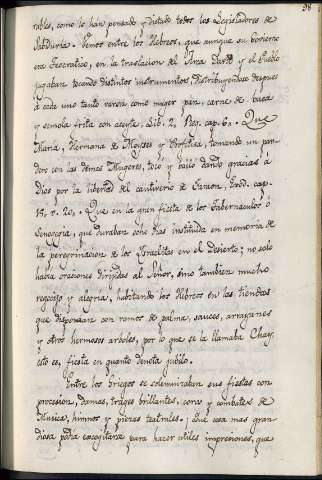 98
rables, como lo han pensado y dictado todos los Legisladores de
Sabiduria. Vemos entre los Hebreos, que aunque su Govierno
era Teocratico, en la traslacion del Arca David y el Pueblo
jugaban tocando distintos instrumentos, distribuyendose despues
á cada uno tanto varon como muger pan, carne de baca
y semola frita con aceyte. Lib. 2, Reg. cap. 6. Que
Maria, Hermana de Moyses y Profetisa, tomando un pan-
dero con las demas Mugeres, tocó y bailó dando gracias á
Dios por la libertad del cautiverio de Faraon, Exod. cap.
15, v. 20. Que en la gran fiesta de los Tabernaculos ó
Senopegia, que duraban ocho dias instituida en memoria de
la peregrinacion de los Israelitas en el Desierto; no solo
havia oraciones dirigidas al Señor, sino tambien mucho
regocijo y alegria, habitando los Hebreos en las tiendas
que disponian con ramos de palma, sauces, arrayanes
y otros hermosos arboles, por lo que se la llamaba Chag,
esto es, fiesta en quanto denota jubilo.
Entre los Griegos se solemnizaban sus fiestas con
procesion, danzas, trages brillantes, coros y combates de
Musica, himnos y piezas teatrales. Que cosa mas gran
diosa podia excogitarse para hacer utiles impresiones, que